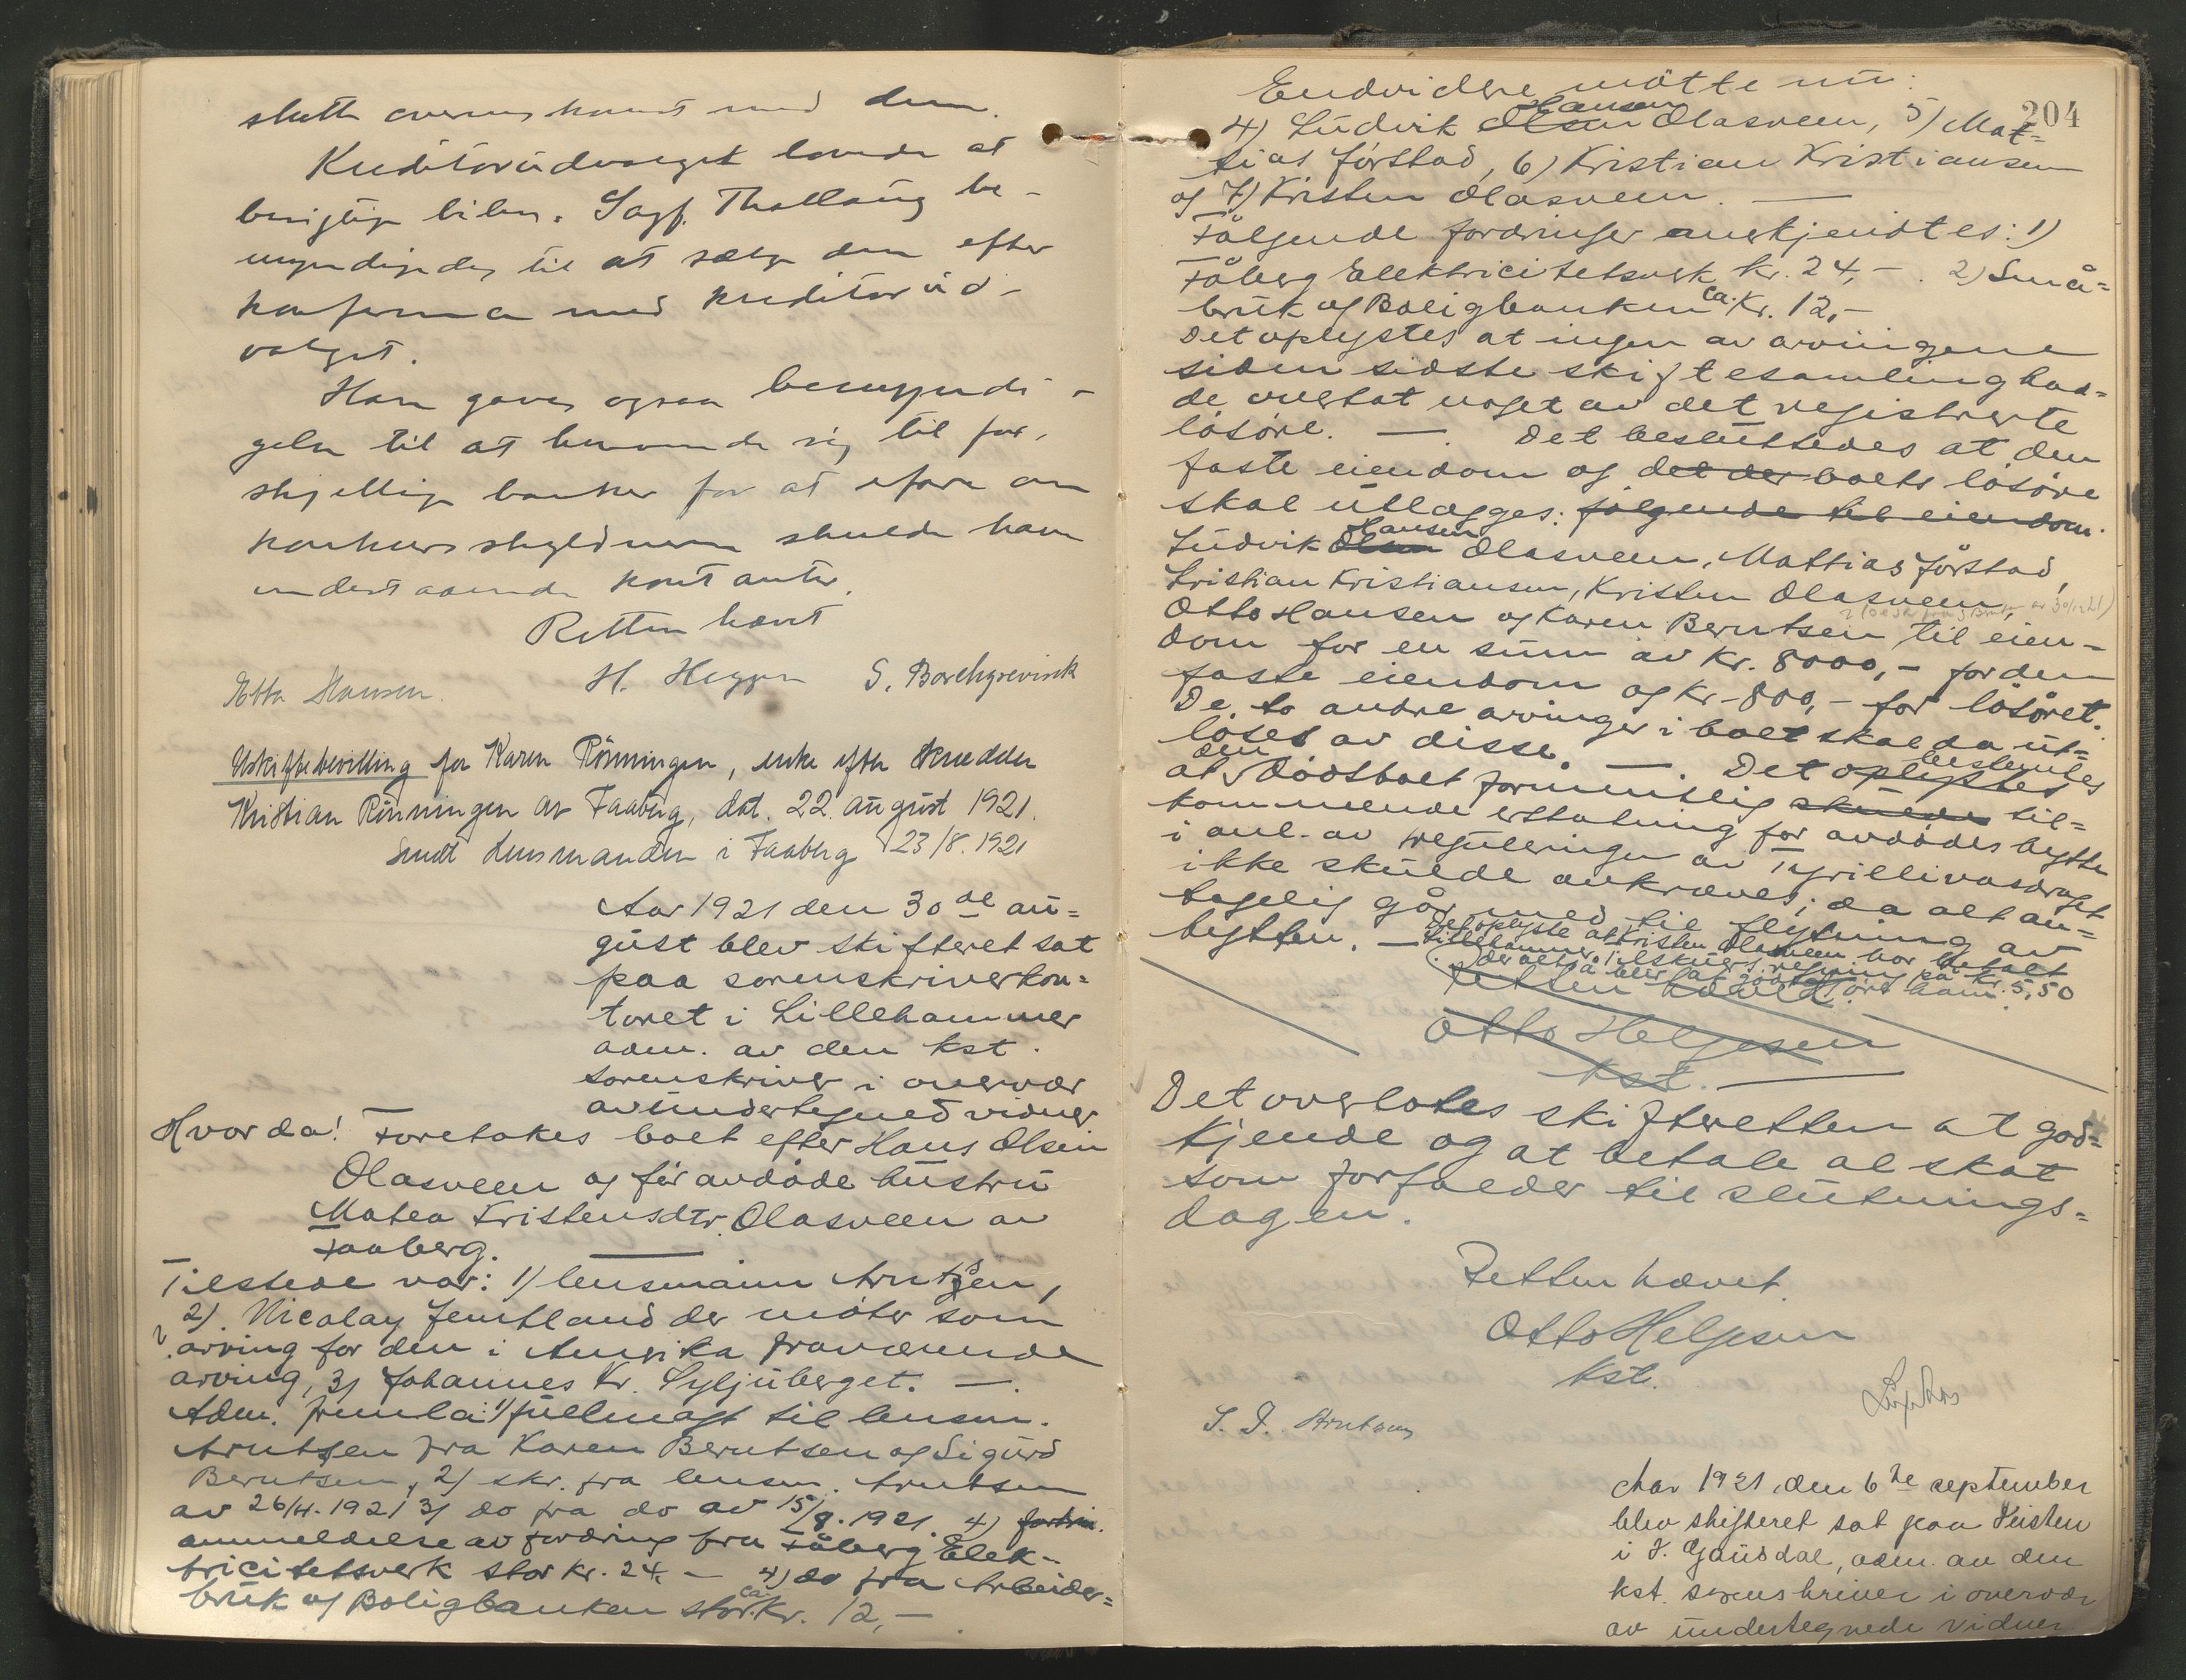 slutte overenskomst med dem.
Kreditorudvalget lovede at
besigtige bilen. Sagf. Thallaug be-
myndigedes til at sælge den efter
konferanse med kreditorud-
valget.
Han gaves ogsaa bemyndi-
gelse til at henvende sig til for-
skjellige banker for at erfare om
konkursskyldneren skulde have
indestaaende kontanter.
Retten hævet
H. Heggen S. Borchgrevink
Otto Hansen.
Uskiftebevilling for Karen Rönningen, enke efter skrædder
Kristian Rönningen av Faaberg, dat. 22. august 1921.
Sendt Lensmanden i Faaberg 23/8. 1921
Aar 1921 den 30de au=
gust blev skifteret sat
paa sorenskriverkon=
toret i Lillehammer
adm. av den kst.
sorenskriver i overvær
av undertegned vidner
Hvorda! Foretokes boet efter Hans Olsen
Olasveen og før avdöde hustru
Matea Kristensdtr. Olasveen av
Faaberg. —
Tilstede var: 1) lensmann Arntsen,
2). Nicolay Jemtland der möter som
arving for den i Amerika fraværende
arving, 3) Johannes Kr. Syljuberget. —.
Adm. fremla: 1) fullmagt til lensm.
Arntsen fra Karen Berntsen og Sigurd
Berntsen, 2) skr. fra lensm. Arntsen
av 26/4. 1921 3) do fra do av 15/8. 1921. 4)
anmeldelse av fordring fra Fåberg Elek-
tricitetsverk stor kr. 24,- 4) do fra Arbeider=
bruk og Boligbanken stor ca. kr. 12,-
204
Endvidere mötte nu:
4) Ludvik Olsen Hansen Olasveen, 5) Mat=
tias Jörstad, 6) Kristian Kristiansen
og 7) Kristen Olasveen. —
Fölgende fordringer anerkjendtes: 1)
Fåberg Elektricitetsverk kr. 24,-. 2) Små=
bruk og Boligbanken ca. kr. 12,-
Det oplystes at ingen av arvingene
siden sidste skiftesamling had=
de overtat noget av det registrerte
lösöre. —. Det besluttedes at den
faste eiendom og det der boets lösöre
skal utlægges: følgende til eiendom.
Ludvik Olsen Hansen Olasveen, Mattias Jörstad,
Kristian Kristiansen, Kristen Olasveen,
Otto Hansen og Karen Berntsen til eien-
dom for en sum av kr. 8000,- for den
faste eiendom og kr. 800,- for lösöret.
De to andre arvinger i boet skal da ut=
löses av disse. —. Det oplystes bestemtes
at den dödsboet formentlig skulde til=
kommende erstatning for avdödes bytte
i anl. av reguleringen av
ikke skulde avkræves; da alt an=
tagelig går med til flytning av
hytten. — Det oplystes at Kristen Olasveen har betalt
Lillehammer Tilskuers regning på kr. 5,50
der altså blir at godtgjöre ham.
Retten hævet.
Otto Helgesen
kst. —
Det overlotes skifteretten at god=
kjende og at betale al skat
som forfalder til slutnings=
dagen.
Retten hævet.
Otto Helgesen
kst.
S. J. Arntsen
Aar 1921, den 6te september
blev skifteret sat paa Keisten
i V. Gausdal, adm. av den
kst. sorenskriver i overvær
av undertegnede vidner.